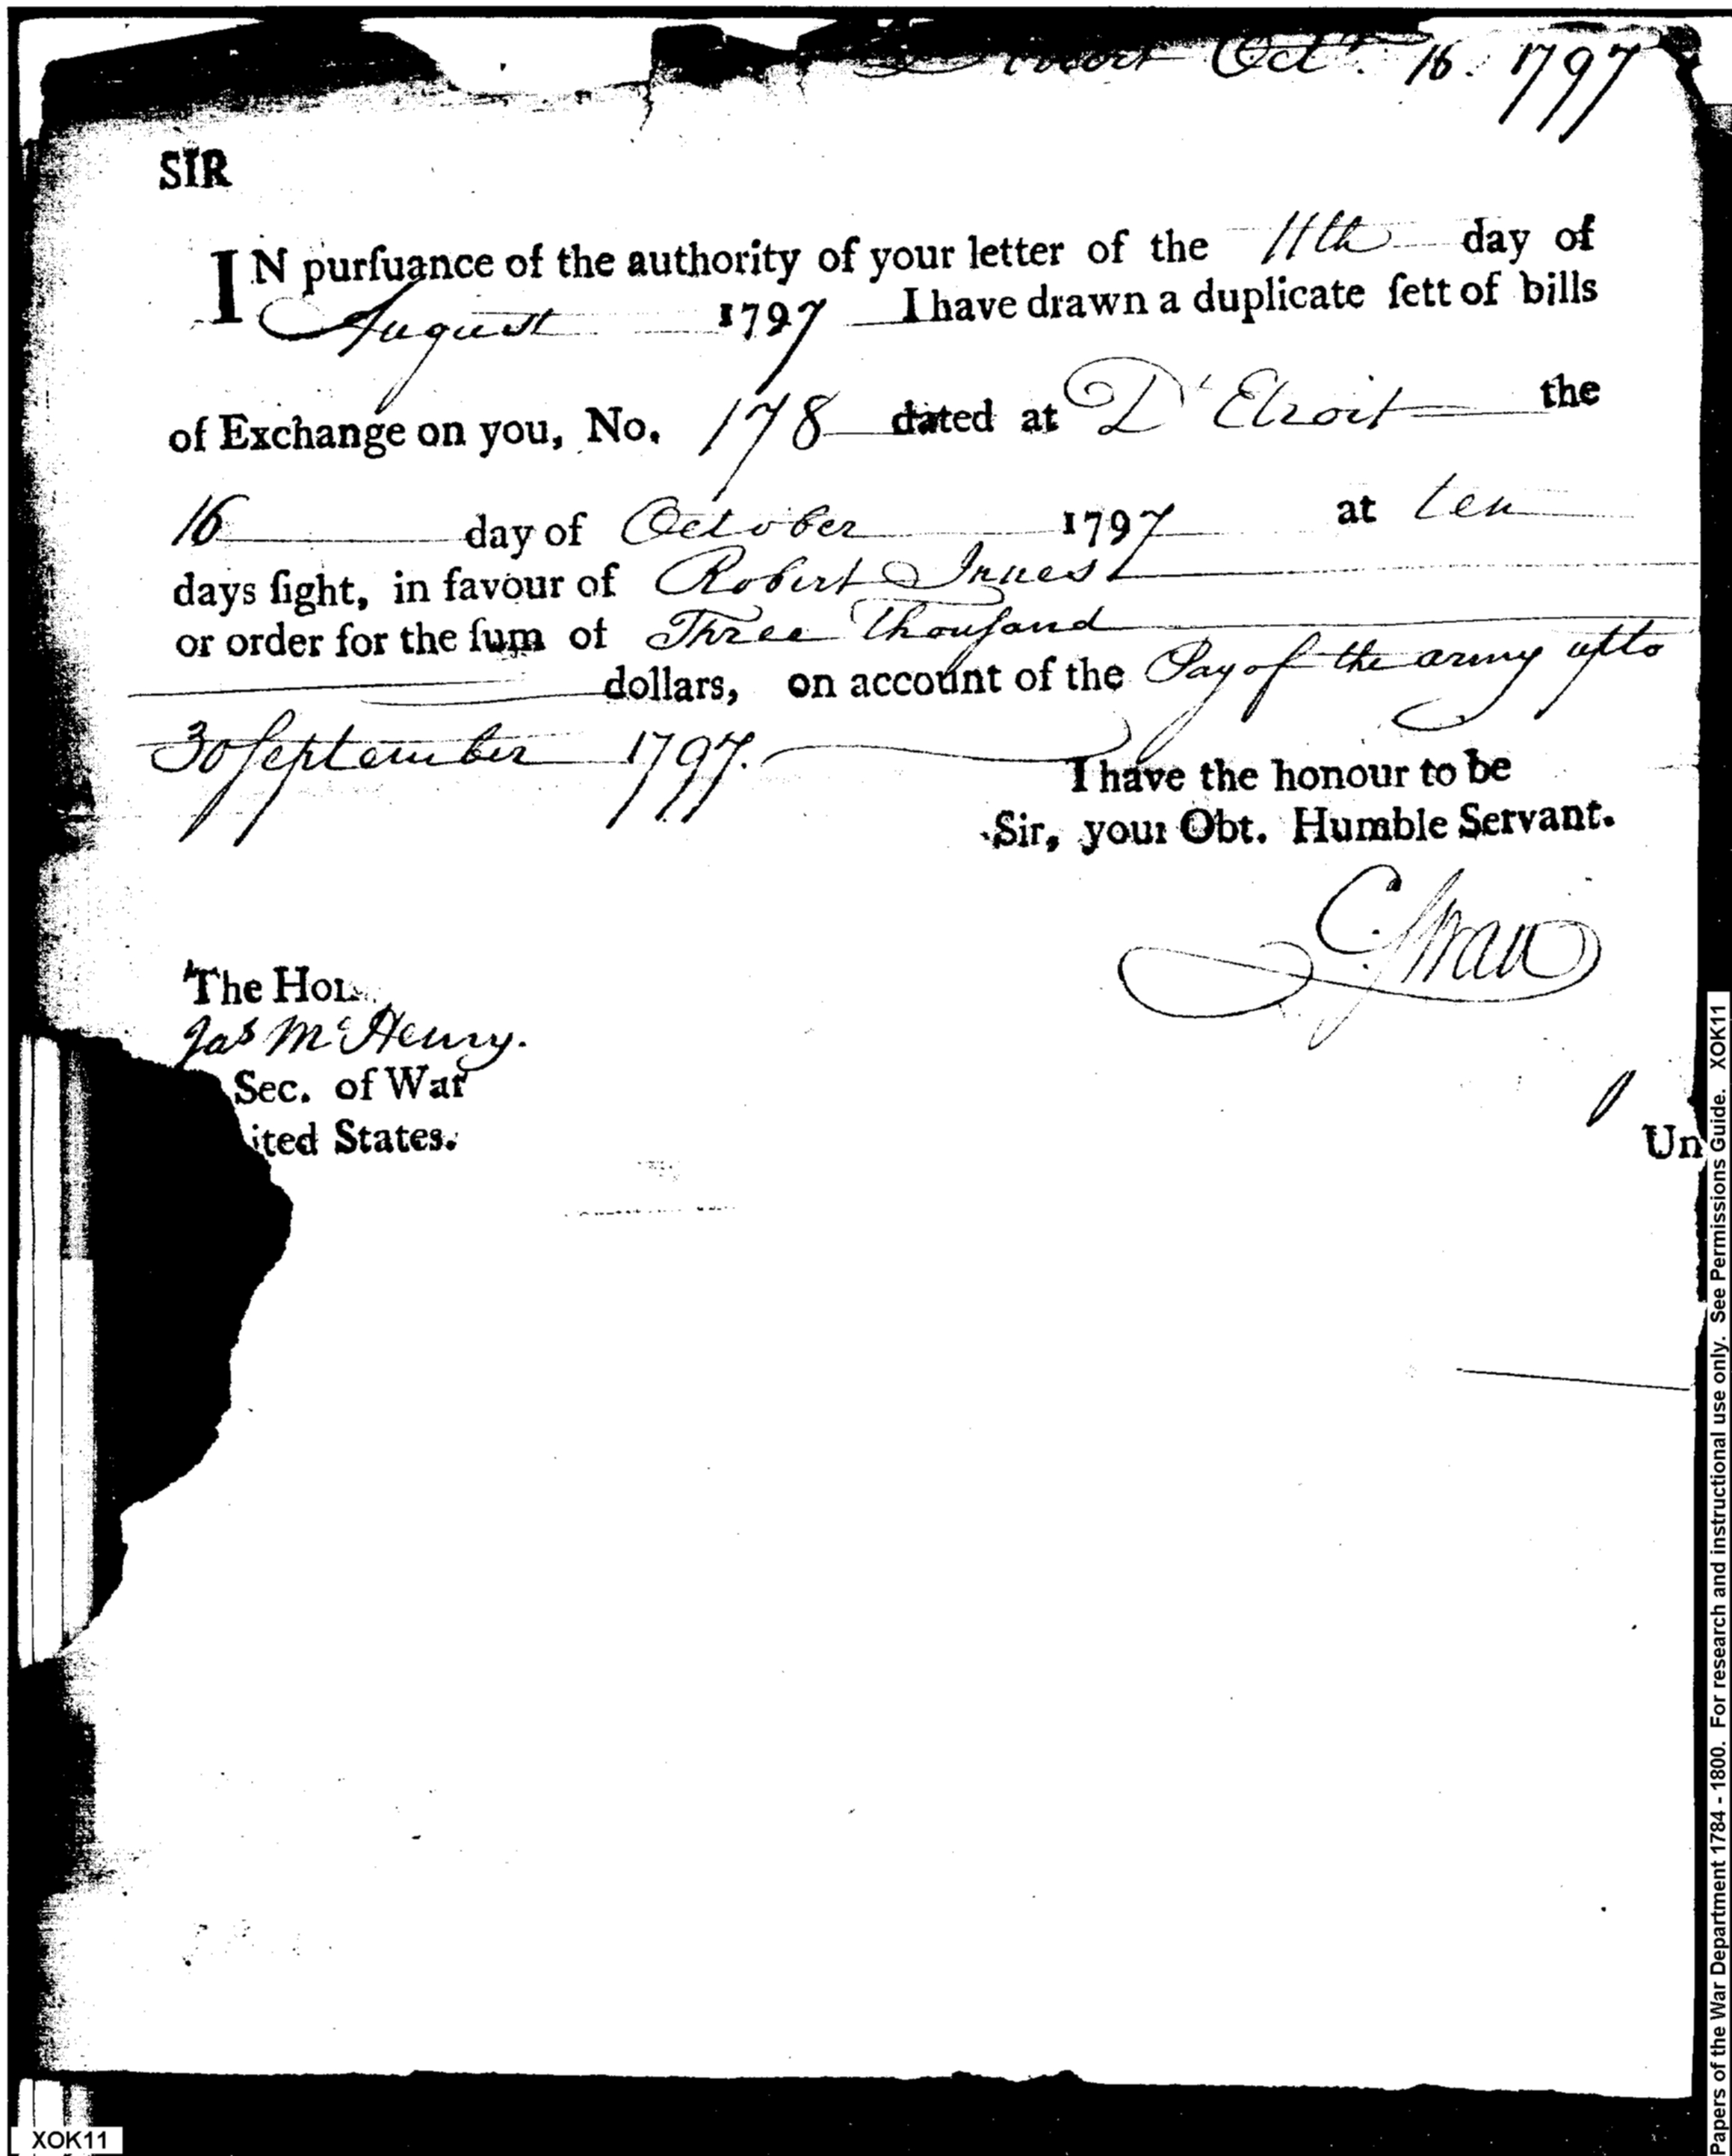 Detroit Octr. 16. 1797
SIR
IN purſuance of the authority of your letter of the 11th day of
August 1797 I have drawn a duplicate ſett of bills
of Exchange on you, No. 178 dated at D'Etroit the
16 day of October 1797 at ten
days ſight, in favour of Robert Innes
or order for the ſum of Three Thouſand
dollars, on account of the Pay of the army upto
30 September 1797.
I have the honour to be
Sir, your Obt. Humble Servant.
C. Swan
The Hon
Jas McHenry.
Sec. of War
ited States.
Un
XOK11
Papers of the War Department 1784 - 1800. For research and instructional use only. See Permissions Guide. XOK11